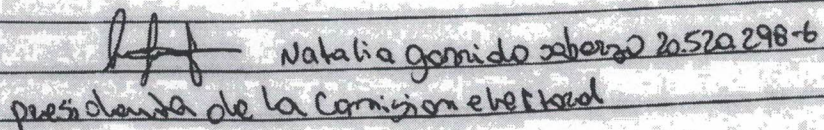 Natalia Garrido 20.520.298-6
presidenta de la Comision electoral